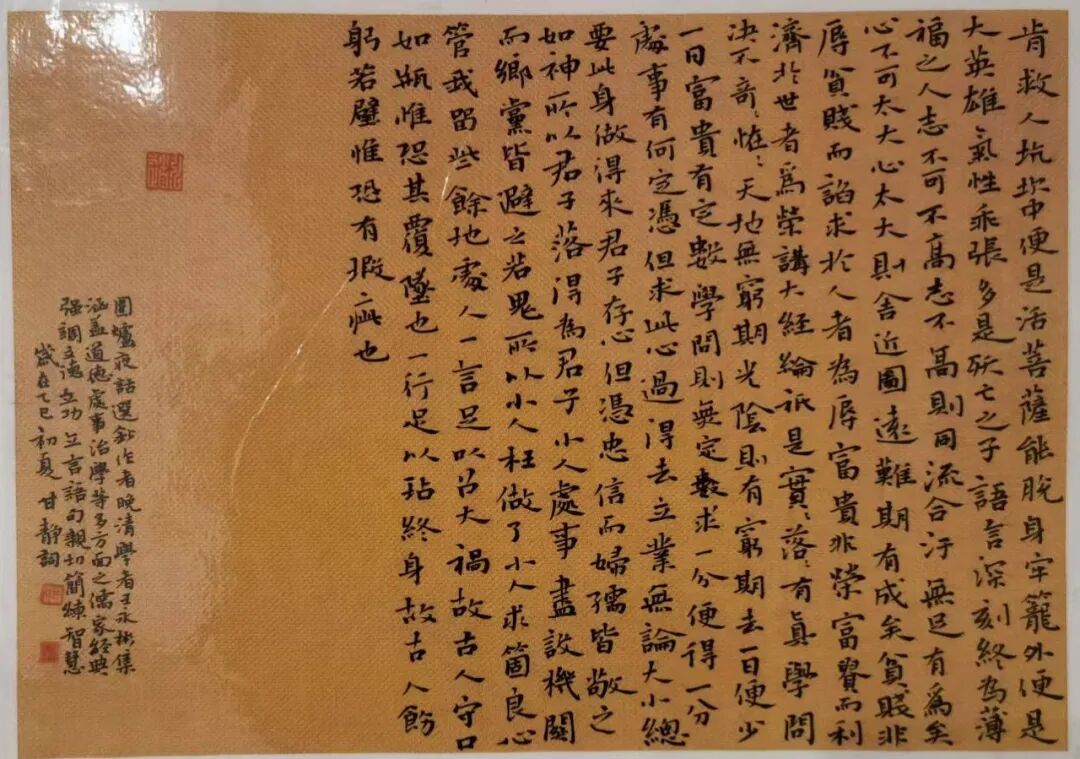 肯救人坑坎中便是活菩薩能脫身牢籠外便是
大英雄氣性乖張多是殀亡之子語言深刻終為薄
福之人志不可不高志不高則同流合汙無足有為矣
心不可太大心太大則舍近圖遠難期有成矣貧賤非
辱貧賤而諂求於人者為辱富貴非榮富貴而利
濟於世者為榮講大經綸祇是實〻落〻有真學問
決不奇〻怪〻天地無窮期光陰則有窮期去一日便少
一日富貴有定數學問則無定數求一分便得一分
處事有何定憑但求此心過得去立業無論大小總
要此身做得來君子存心但憑忠信而婦孺皆敬之
如神所以君子落得為君子小人處事盡設機關
而鄉黨皆避之若鬼所以小人枉做了小人求箇良心
管我留些餘地處人一言足以召大禍故古人守口
如瓶惟恐其覆墜也一行足以玷終身故古人飭
躬若璧惟恐有瑕疵也
圍爐夜話選鈔作者晚清學者王永彬集
涵蓋道德處事治學等多方面之儒家經典
强調立德立功立言語句親切簡練智慧
歲在乙巳初夏甘靜詞